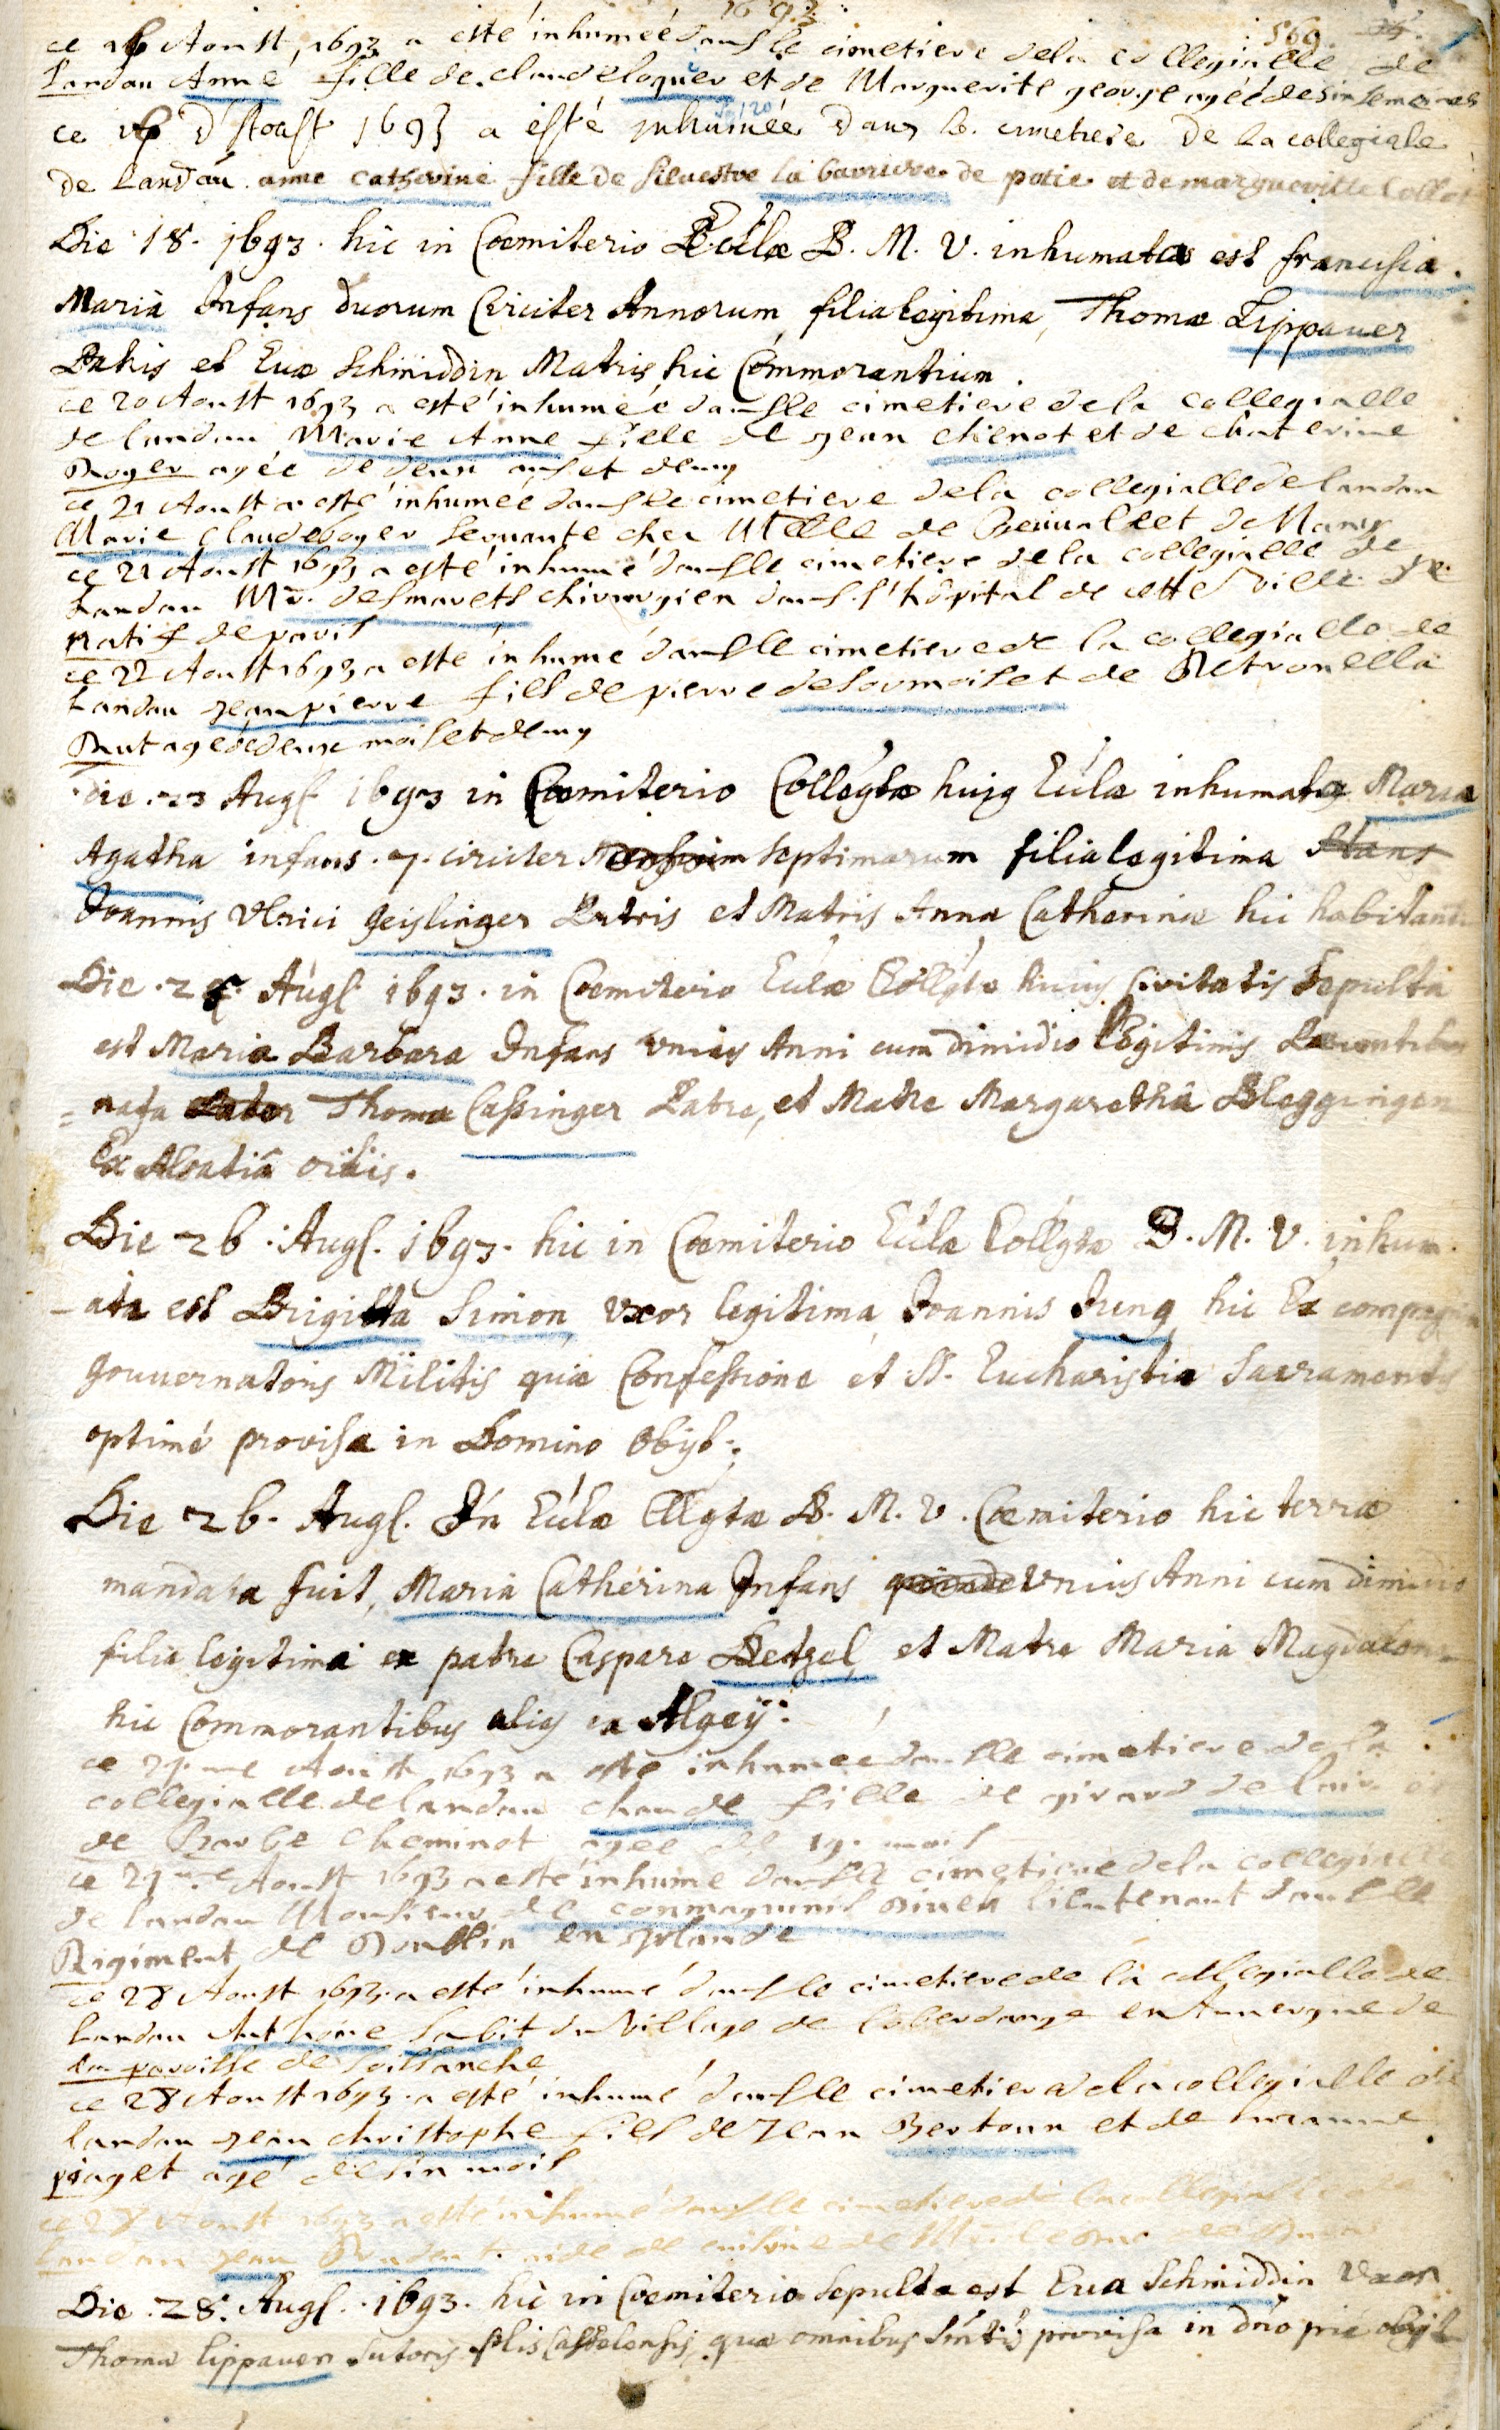 1693
569
ce 16 Aoust 1693 a esté inhumée dansle cimetiere dela collegialle de
Landau Anne fille de claude loquer et de Marguerite george agéé de six semaines
ce 16 d'Aoust 1693 a esté inhumée dans le cimetiere de la collegiale
de Landau anne catherine fille de siluestre la bauriere de patie et de margueritte
Die 18. 1693. hic in Cœmiterio Eccl͞æ B. M. V. inhumata est francisia.
Maria Infans duorum Circiter Annorum filia legitima, Thomæ Lippauer
Patris et Euæ Schmiddin Matris hic Com̃morantium.
ce 20 Aoust 1693 a esté inhumée dansle cimetiere dela collegialle
de landau Marie Anne fille de jean chienot et de chaterine
Roger agée de deux ans et demy
ce 21 Aoust a esté inhumée dansle cimetiere dela collegialle de landau
Marie claude boyer seruante chez Melle de et de Nancy
ce 21 Aoust 1693 a esté inhumé dansle cimetiere de la collegialle de
Landau Mr. desmarets chirurgien dans l'hôpital de cette ville
natif de paris
ce 22 Aoust 1693 a esté inhumé dansle cimetiere de la collegialle de
Landau jean pierre fils de pierre desormois et de Petronella
Rut agé de deux mois et demy
die 23 Augs. 1693 in Cœmiterio Collegtæ hujus Eccl͞æ inhumata Maria
Agatha infans. 7. circiter septimarum filia legitima
Joannis Vlrici Geislinger Patris et Matris Annæ Catharinæ hic habitant
Die. 25. Augs. 1693. in Cœmiterio Eccl͞æ Collgtæ huius Civitatis Sepulta
est Maria Barbara Infans vnius Anni cum dimidio legitimis Parentibus
= nata Thoma Cassinger Patre, et Matre Margaretha Bleggingen
Ex Alsatiâ
Die 26. Augs. 1693. hic in Cœmiterio Eccl͞æ Collgtæ B. M. V. inhum
- ata est Brigitta Simon, vxor legitima, Joannis Jung hic Ex compagnia
gouuernatoris Militis quæ Confessione et SS. Eucharistiæ Sacramentis
optimé provisa in Domino Obijt.
Die 26. Augs. In Eccl͞æ Cllgtæ B. M. V. Cœmiterio hic terræ
mandata fuit, Maria Catherina Infans Vnius Anni cum dimidio
filia legitima ex patre Caspare Detzel et Matre Maria Magdalena
hic Commorantibus aliis ex Algeÿ.
ce 27.me Aoust 1693 a esté inhumée dansle cimetiere de la
collegialle de landau claude fille de girard de lair et
de Barbe cheminot agée de 19. mois
ce 27me Aoust 1693 a esté inhumé dansle cimetiere dela collegialle
de landau Monsieur lieutenant dansle
Regiment de Doublin en yrlande
ce 28 Aoust 1693 a esté inhumé dansle cimetiere de la collegialle de
landau Anthoine Sabit du village de loberdange en Auuergne de
la paroisse de
ce 28 Aoust 1693. a esté inhumé dansle cimetiere dela collegialle de
landau jean christophe fils de Jean Bertoun et de Suzanne
piaget agé de six mois
ce 28 Aoust 1693 a esté inhumé dansle cimetiere de la collegialle de
landau jean aide de cuisine de
Die. 28. Augs. 1693. hic in Cœmiterio Sepulta est Eua Schmiddin vxor
Thomæ Lippauer Sutoris quæ omnibus provisa in dño piè obijt